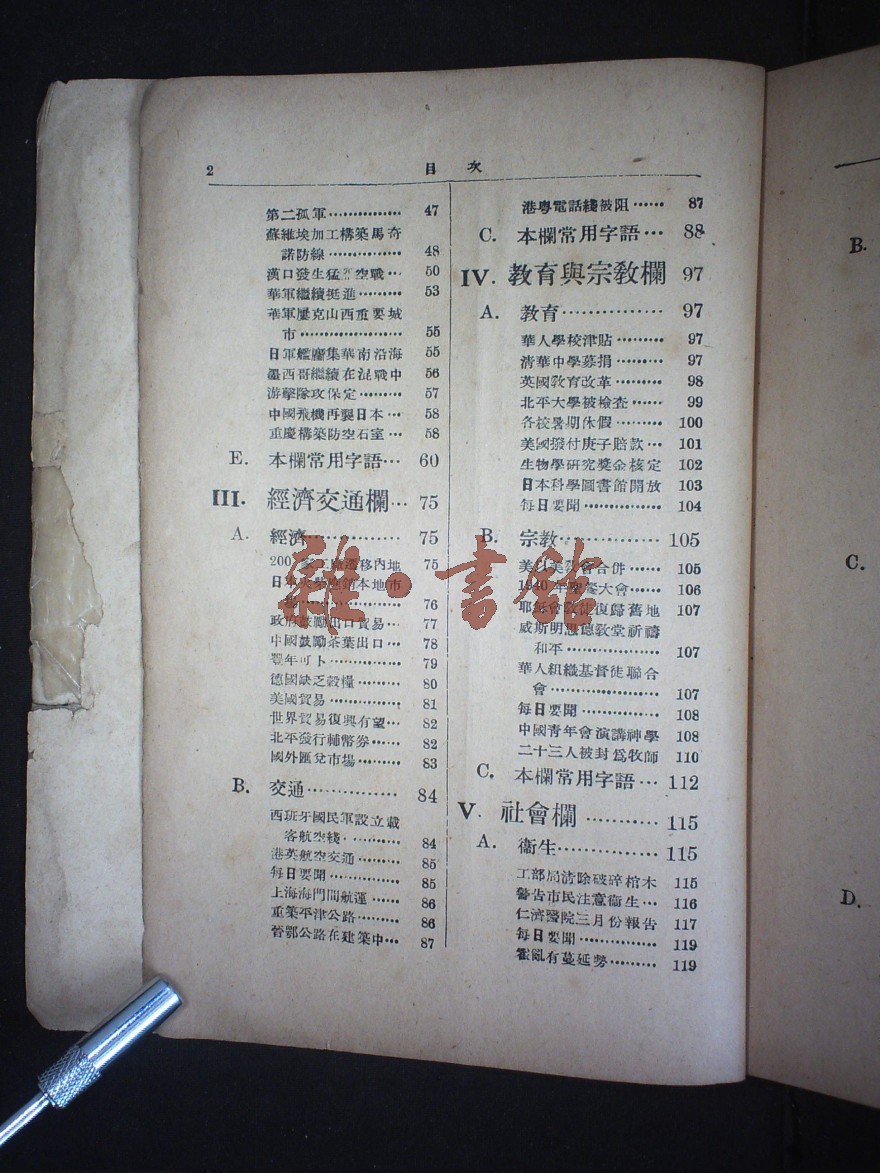 2
目 次
第二孤軍 ··············· 47
蘇維埃加工構築馬奇
諾防線 ··············· 48
漢口發生猛烈空戰 ··· 50
華軍繼續挺進 ········· 53
華軍屢克山西重要城
市 ····················· 55
日軍艦麕集華南沿海 55
墨西哥繼續在混戰中 56
游擊隊攻保定 ········· 57
中國飛機再襲日本 ··· 58
重慶構築防空石室 ··· 58
E. 本欄常用字語 ··· 60
III. 經濟交通欄 ··· 75
A. 經濟 ··············· 75
200 家工廠遷移內地 75
日本火柴 本地市
··············· 76
政府鼓勵出口貿易 ··· 77
中國鼓勵茶葉出口 ··· 78
豐年可卜 ··············· 79
德國缺乏穀糧 ········· 80
美國貿易 ··············· 81
世界貿易復興有望 ··· 82
北平發行輔幣券 ······ 82
國外匯兌市場 ········· 83
B. 交通 ··············· 84
西班牙國民軍設立載
客航空綫 ············ 84
港英航空交通 ········· 85
每日要聞 ··············· 85
上海海門間航運 ······ 86
重築平津公路 ········· 86
晉鄂公路在建築中 ··· 87
港粵電話綫被阻 ······ 87
C. 本欄常用字語 ··· 88
IV. 教育與宗教欄 97
A. 教育 ··············· 97
華人學校津貼 ········· 97
清華中學募捐 ········· 97
英國教育改革 ········· 98
北平大學被檢查 ······ 99
各校暑期休假 ········· 100
美國撥付庚子賠款 ··· 101
生物學研究獎金核定 102
日本科學圖書館開放 103
每日要聞 ··············· 104
B. 宗教 ··············· 105
美以美教會合併 ······ 105
1940 年聖餐大會 ······ 106
耶穌會教徒復歸舊地 107
威斯明思德教堂祈禱
和平 ··················· 107
華人組織基督徒聯合
會 ····················· 107
每日要聞 ··············· 108
中國青年會演講神學 108
二十三人被封爲牧師 110
C. 本欄常用字語 ··· 112
V. 社會欄 ············ 115
A. 衞生 ··············· 115
工部局清除破碎棺木 115
警告市民注意衞生 ··· 116
仁濟醫院三月份報告 117
每日要聞 ··············· 119
霍亂有蔓延勢 ········· 119
B.
C.
D.
雜·書館